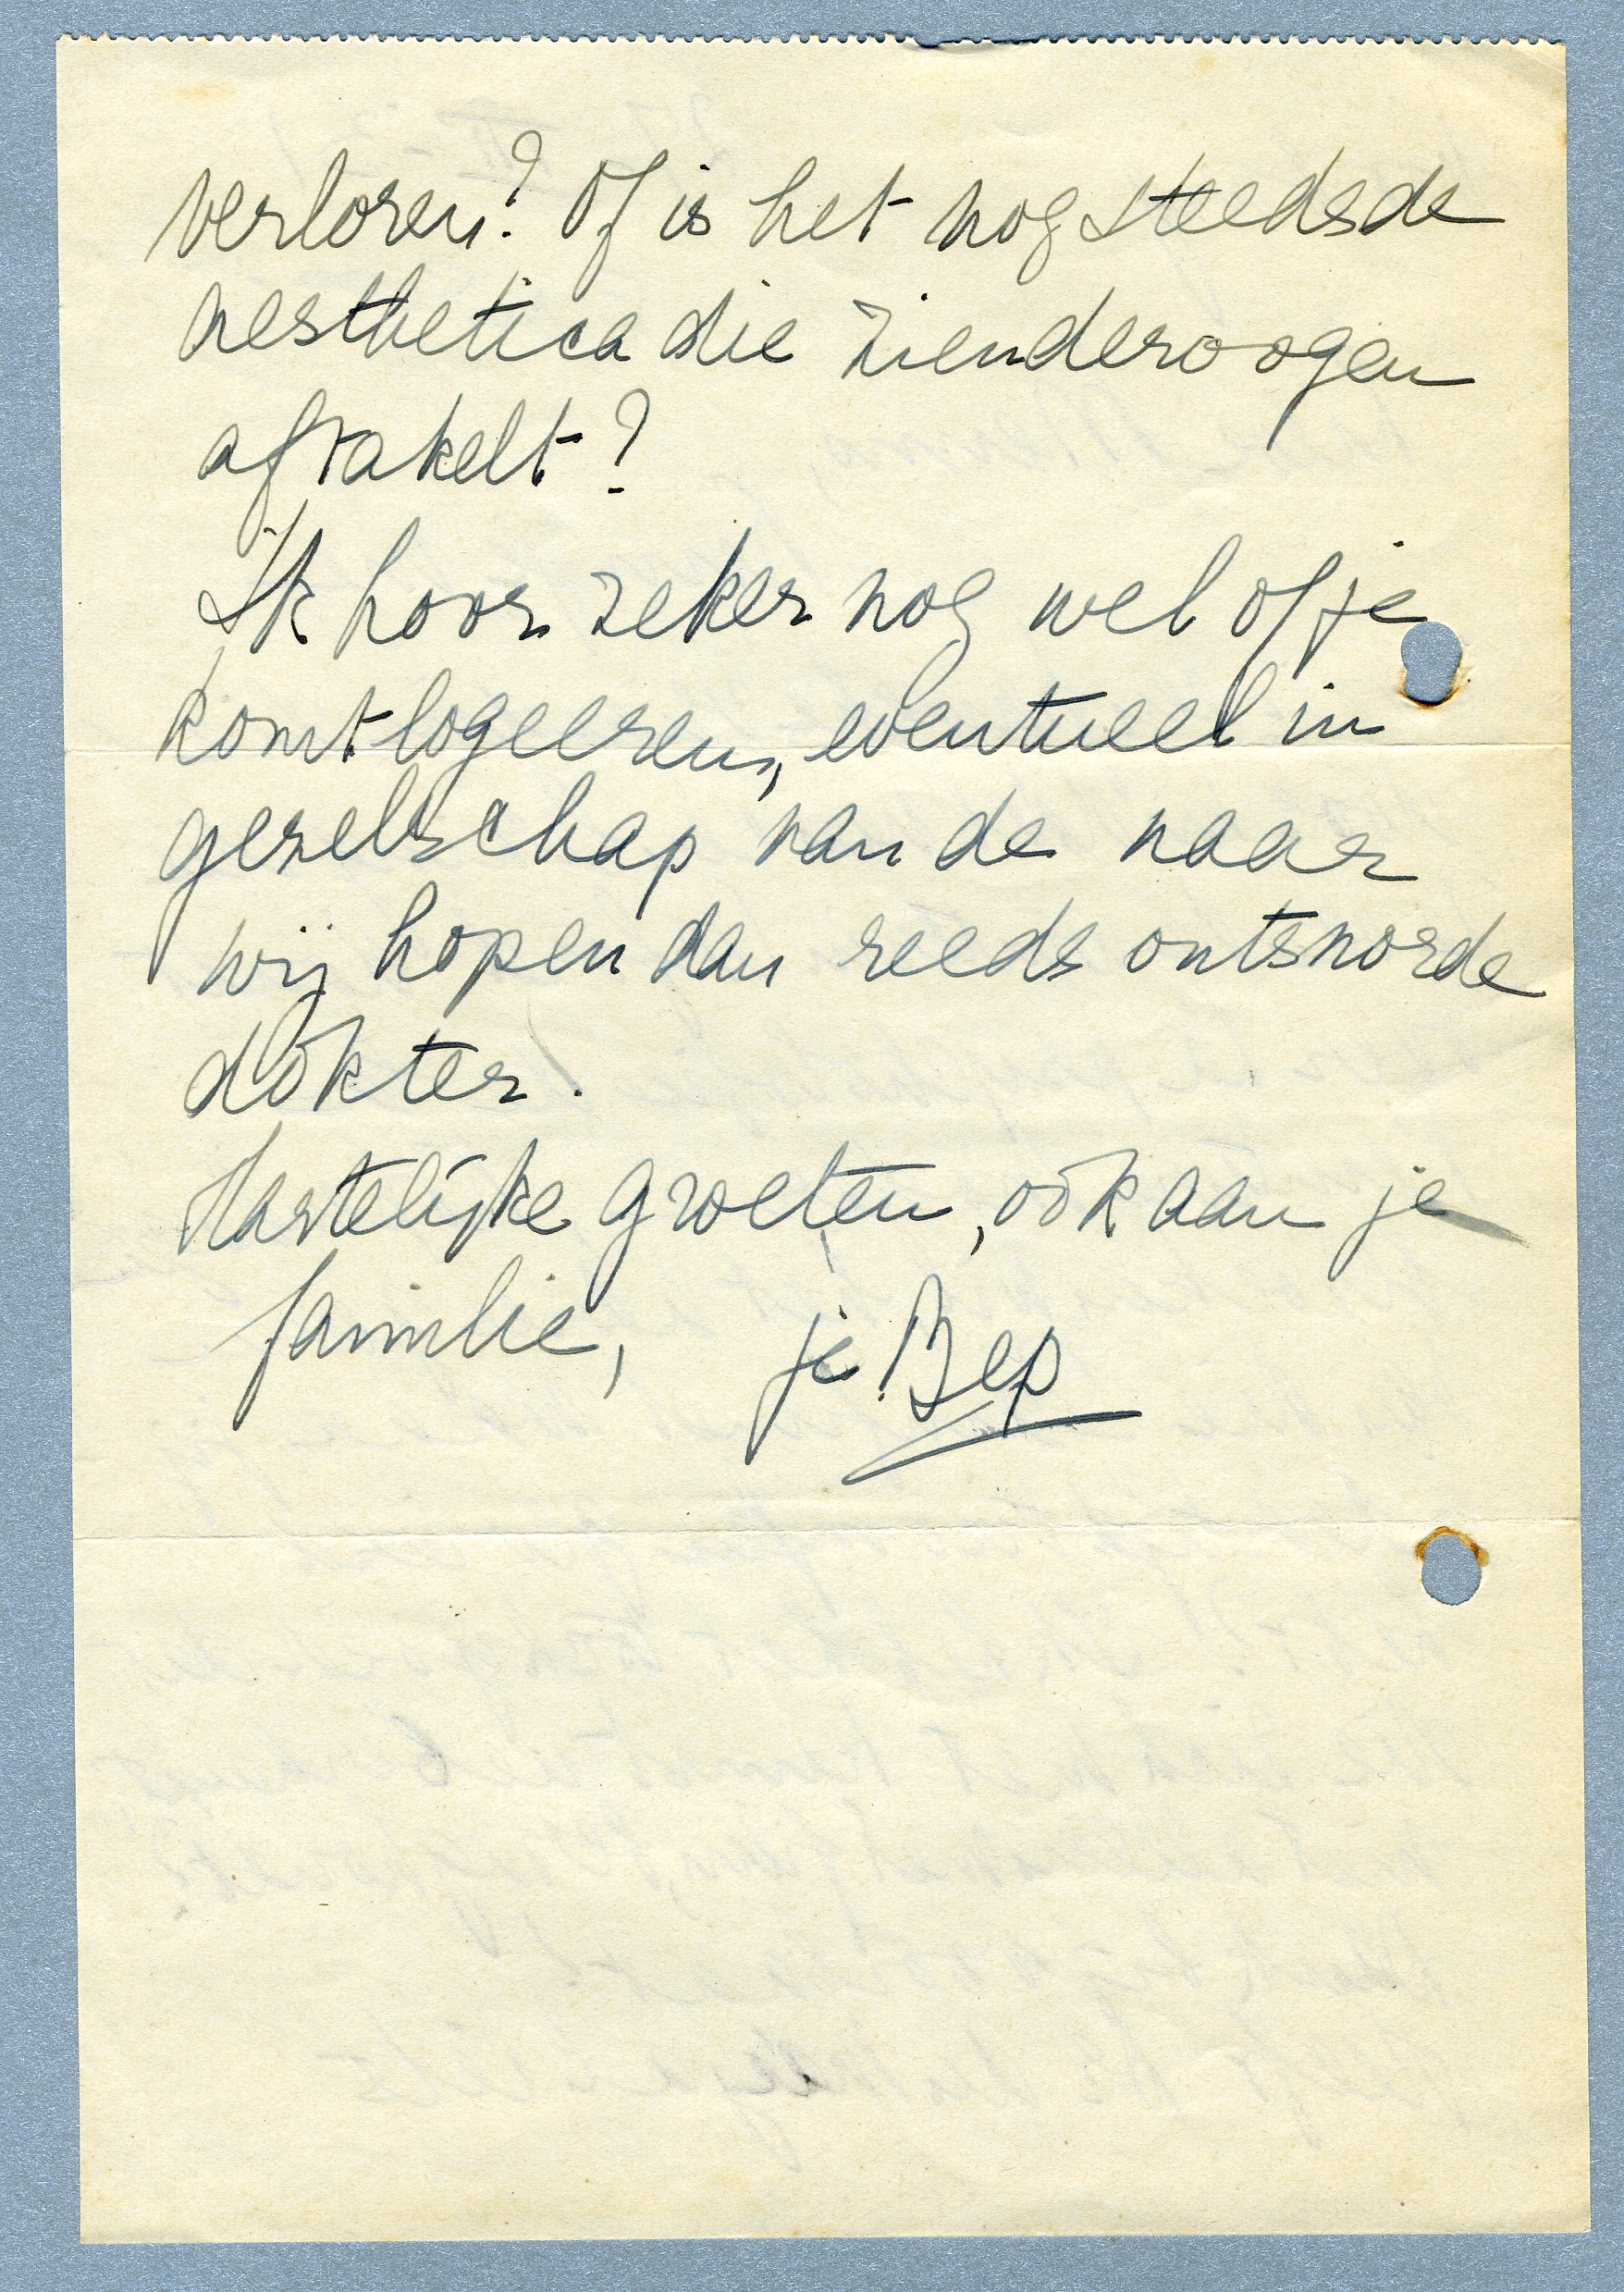 verloren? Of is het nog steeds de
aesthetica die zienderoogen
aftakelt?
Ik hoor zeker nog wel of je
komt logeeren, eventueel in
gezelschap van de naar
wij hopen dan reeds ontsnorde
dokter.
Hartelijke groeten, ook aan je
familie, je Bep